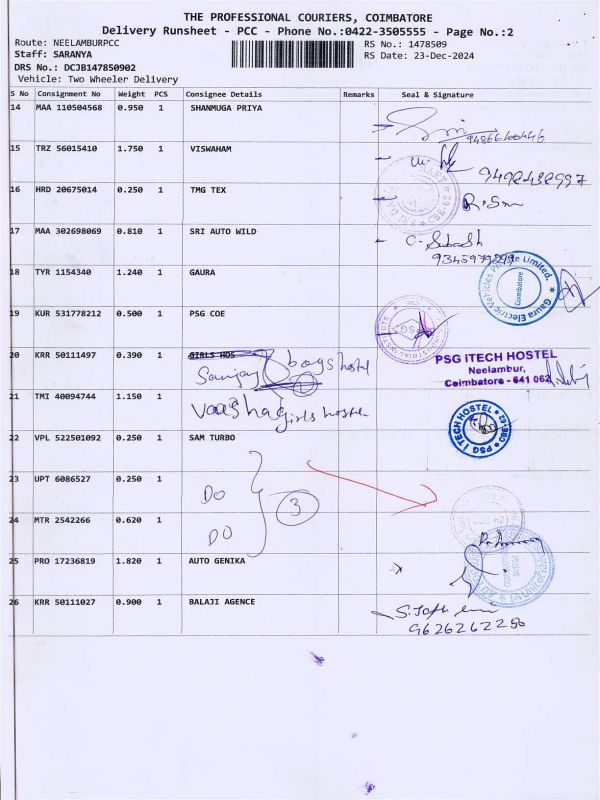 THE PROFESSIONAL COURIERS, COIMBATORE
Delivery Runsheet - PCC - Phone No.:0422-3505555 - Page No.:2
Route: NEELAMBURPCC RS No.: 1478509
Staff: SARANYA RS Date: 23-Dec-2024
DRS No.: DCJB147850902
Vehicle: Two Wheeler Delivery
S No Consignment No Weight PCS Consignee Details Remarks Seal & Signature
14 MAA 110504568 0.950 1 SHANMUGA PRIYA
15 TRZ 56015410 1.750 1 VISWAHAM
9498438997
16 HRD 20675014 0.250 1 TMG TEX
17 MAA 302698069 0.810 1 SRI AUTO WILD
18 TYR 1154340 1.240 1 GAURA
Gaura Electric Vehicles Private Limited. Coimbatore
19 KUR 531778212 0.500 1 PSG COE
PSG
20 KRR 50111497 0.390 1 GIRLS HOS
Sanjay boys hostel
PSG iTECH HOSTEL
Neelambur,
Coimbatore - 641 062
21 TMI 40094744 1.150 1
girls hostel
PSG iTECH HOSTEL
22 VPL 522501092 0.250 1 SAM TURBO
23 UPT 6086527 0.250 1
DO
3
24 MTR 2542266 0.620 1
DO
25 PRO 17236819 1.820 1 AUTO GENIKA
26 KRR 50111027 0.900 1 BALAJI AGENCE